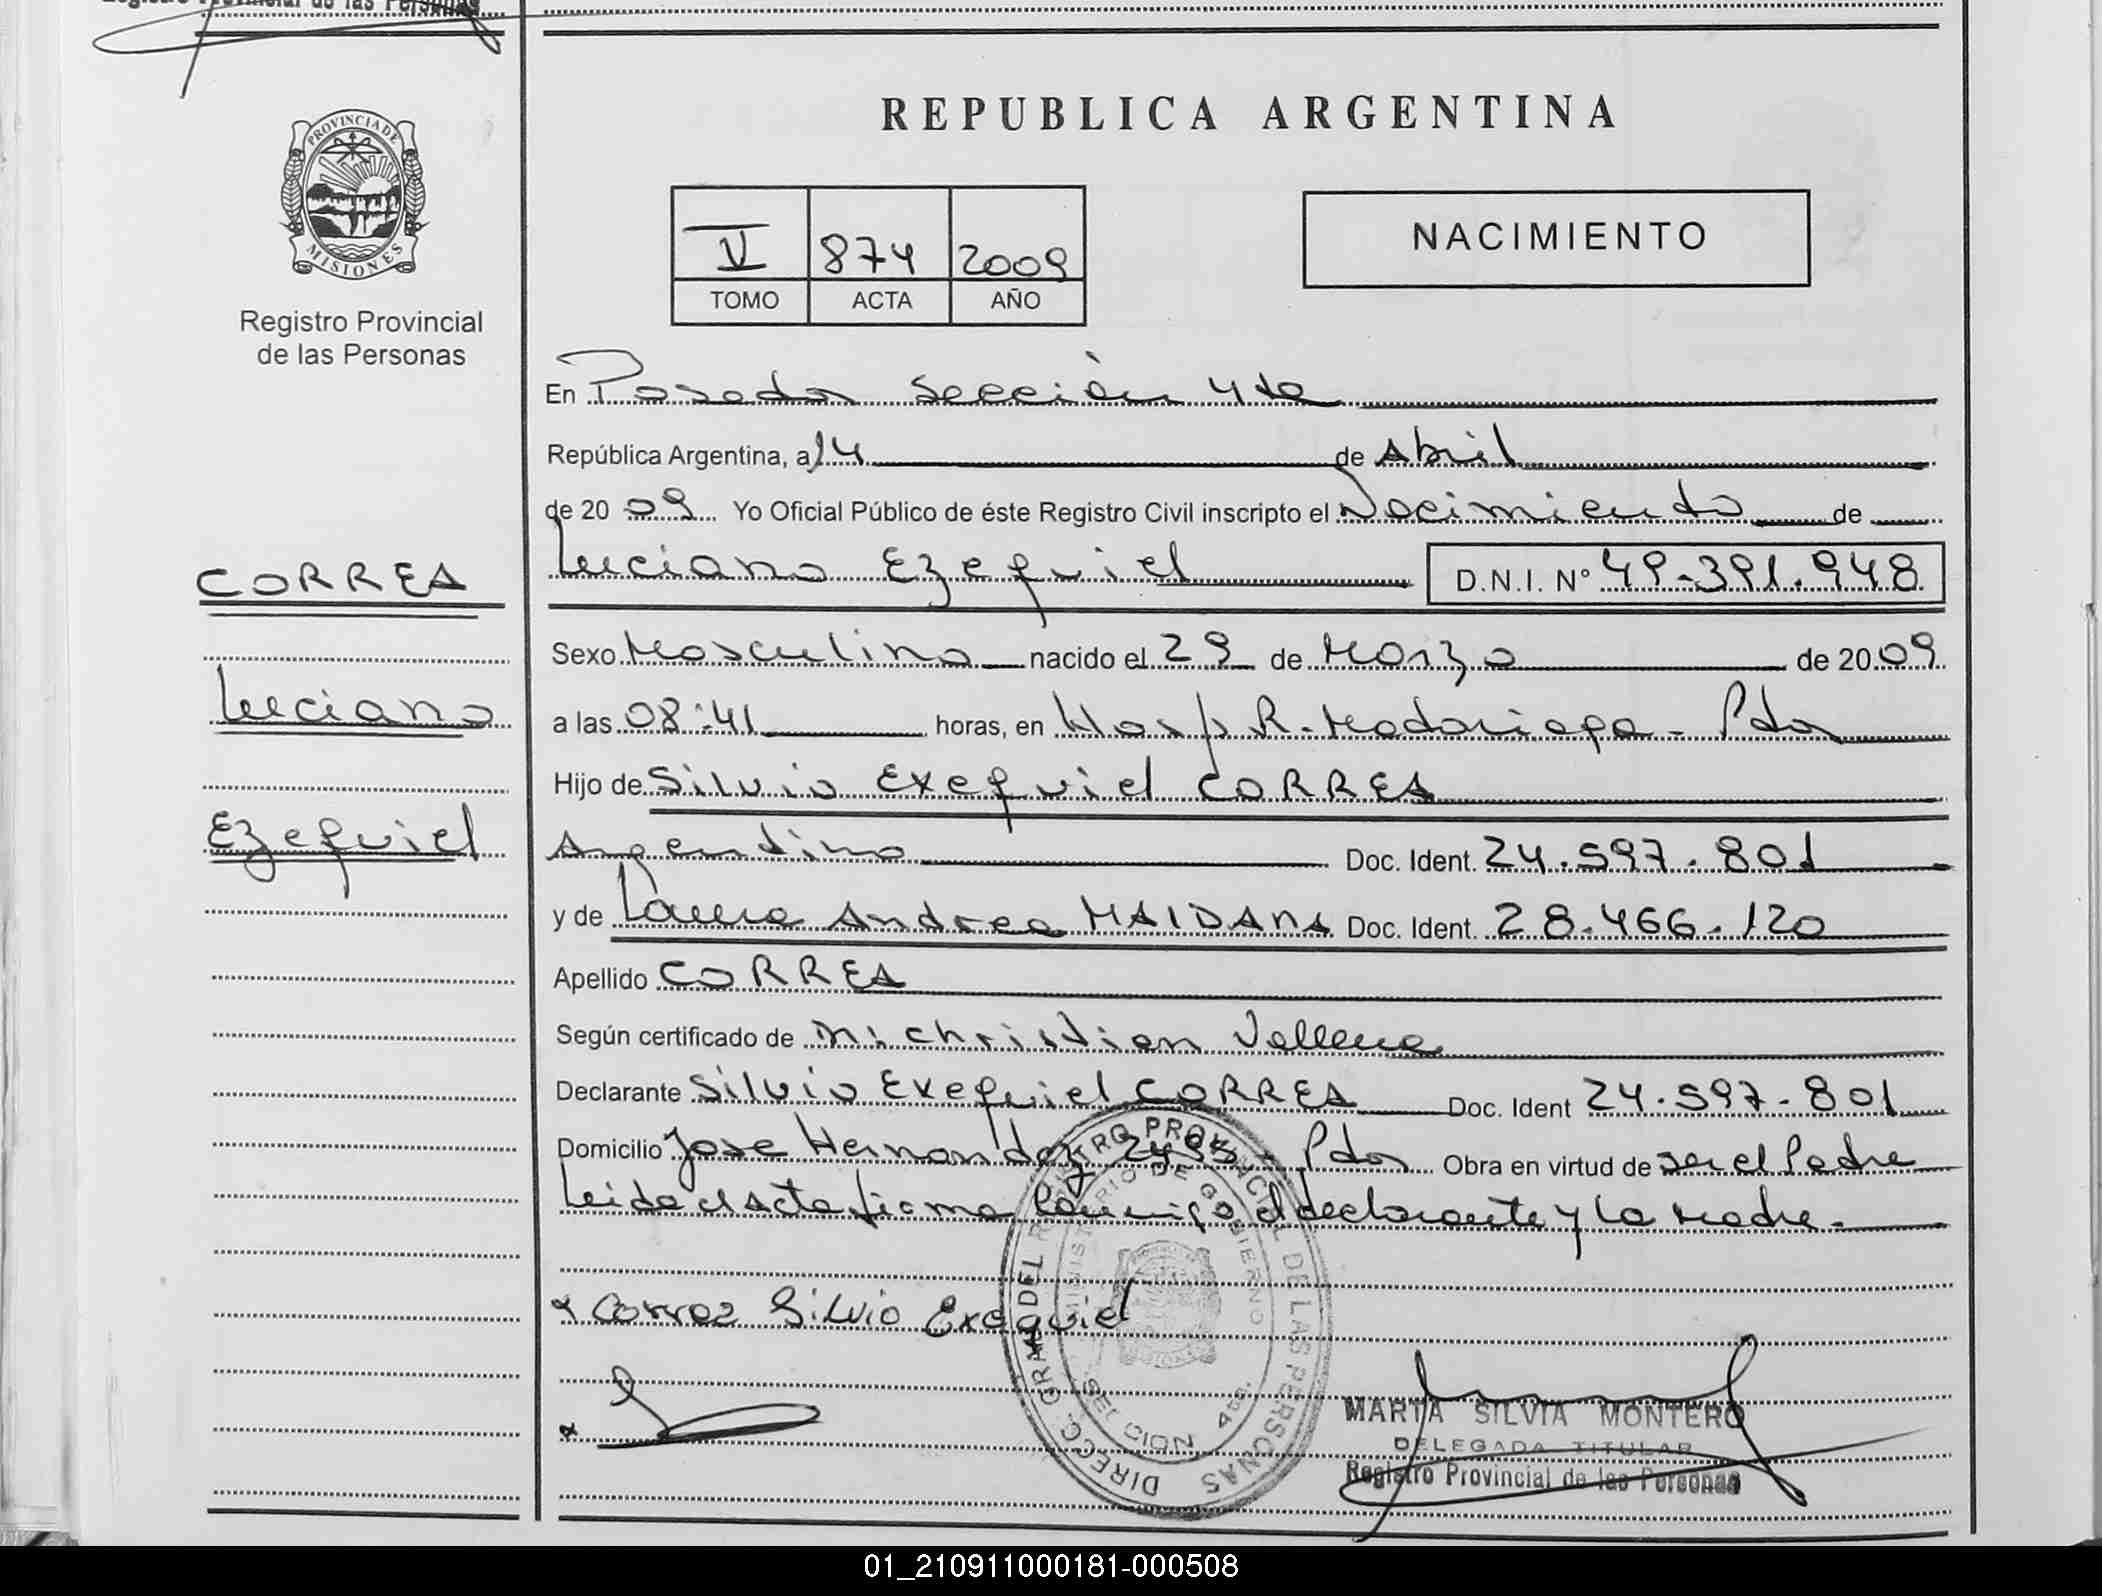 Registro Provincial de las Personas
PROVINCIA DE
MISIONES
Registro Provincial
de las Personas
CORREA
Luciano
Ezequiel
REPUBLICA ARGENTINA
V 874 2009
TOMO ACTA AÑO
NACIMIENTO
En Posadas Sección 4ta
República Argentina, a 14 de Abril
de 20 09 Yo Oficial Público de éste Registro Civil inscripto el Nacimiento de
Luciano Ezequiel D.N.I. Nº 49.391.948
Sexo Masculino nacido el 29 de Marzo de 20 09
a las 08:41 horas, en Hosp R. Madariaga - Pdas
Hijo de Silvio Exequiel CORREA
Argentino Doc. Ident. 24.597.801
y de Laura Andrea MAIDANA Doc. Ident. 28.466.120
Apellido CORREA
Según certificado de Christian
Declarante Silvio Exequiel CORREA Doc. Ident 24.597.801
Domicilio Jose Hernandez - Pdas Obra en virtud de ser el Padre
Leida el Acta firma conmigo el declarante y la Madre.
x Correa Silvio Exequiel
x
DIRECC. GRAL. DEL REGISTRO PROVINCIAL DE LAS PERSONAS
MINISTERIO DE GOBIERNO
SECCION 4ta.
MARTA SILVIA MONTERO
DELEGADA TITULAR
Registro Provincial de las Personas
01_210911000181-000508